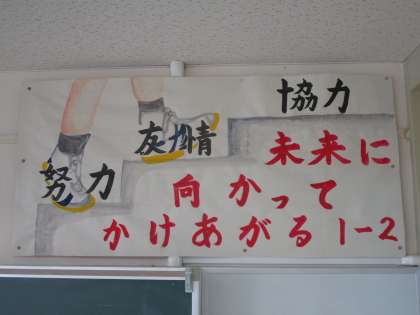 努力
友情
協力
未来に
向かって
かけあがる1-2